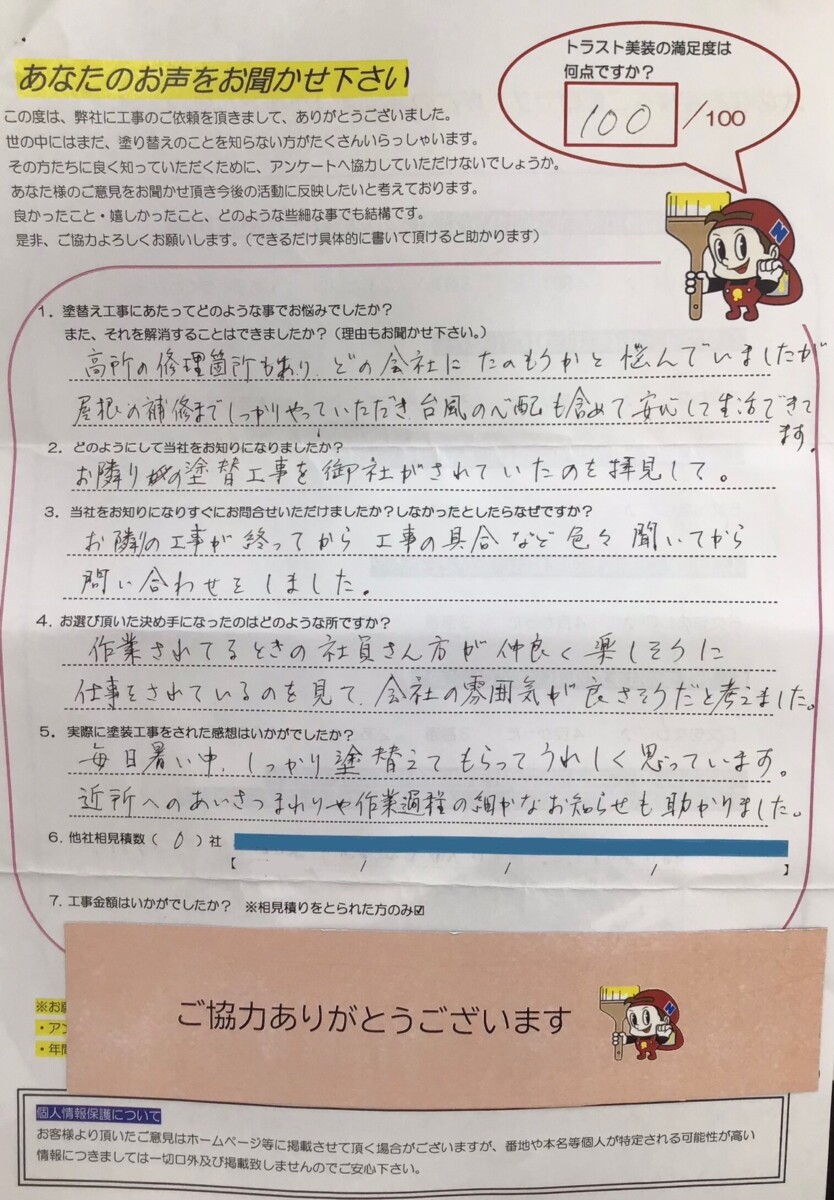 トラスト美装の満足度は
何点ですか？
100 /100
あなたのお声をお聞かせ下さい
この度は、弊社に工事のご依頼を頂きまして、ありがとうございました。
世の中にはまだ、塗り替えのことを知らない方がたくさんいらっしゃいます。
その方たちに良く知っていただくために、アンケートへ協力していただけないでしょうか。
あなた様のご意見をお聞かせ頂き今後の活動に反映したいと考えております。
良かったこと・嬉しかったこと、どのような些細な事でも結構です。
是非、ご協力よろしくお願いします。（できるだけ具体的に書いて頂けると助かります）
1．塗替え工事にあたってどのような事でお悩みでしたか？
また、それを解消することはできましたか？（理由もお聞かせ下さい。）
高所の修理箇所もあり、どの会社にたのもうかと悩んでいましたが
屋根の補修までしっかりやっていただき台風の心配も含めて安心して生活できて
ます。
2．どのようにして当社をお知りになりましたか？
お隣りの塗替工事を御社がされていたのを拝見して。
3．当社をお知りになりすぐにお問合せいただけましたか？しなかったとしたらなぜですか？
お隣の工事が終ってから工事の具合など色々聞いてから
問い合わせをしました。
4．お選び頂いた決め手になったのはどのような所ですか？
作業されてるときの社員さん方が仲良く楽しそうに
仕事をされているのを見て、会社の雰囲気が良さそうだと考えました。
5．実際に塗装工事をされた感想はいかがでしたか？
毎日暑い中、しっかり塗替えてもらってうれしく思っています。
近所へのあいさつまわりや作業過程の細かなお知らせも助かりました。
6．他社相見積数（ 0 ）社
【 / / / 】
7．工事金額はいかがでしたか？ ※相見積りをとられた方のみ☑
※お
・アン
・年間
ご協力ありがとうございます
個人情報保護について
お客様より頂いたご意見はホームページ等に掲載させて頂く場合がございますが、番地や本名等個人が特定される可能性が高い
情報につきましては一切口外及び掲載致しませんのでご安心下さい。